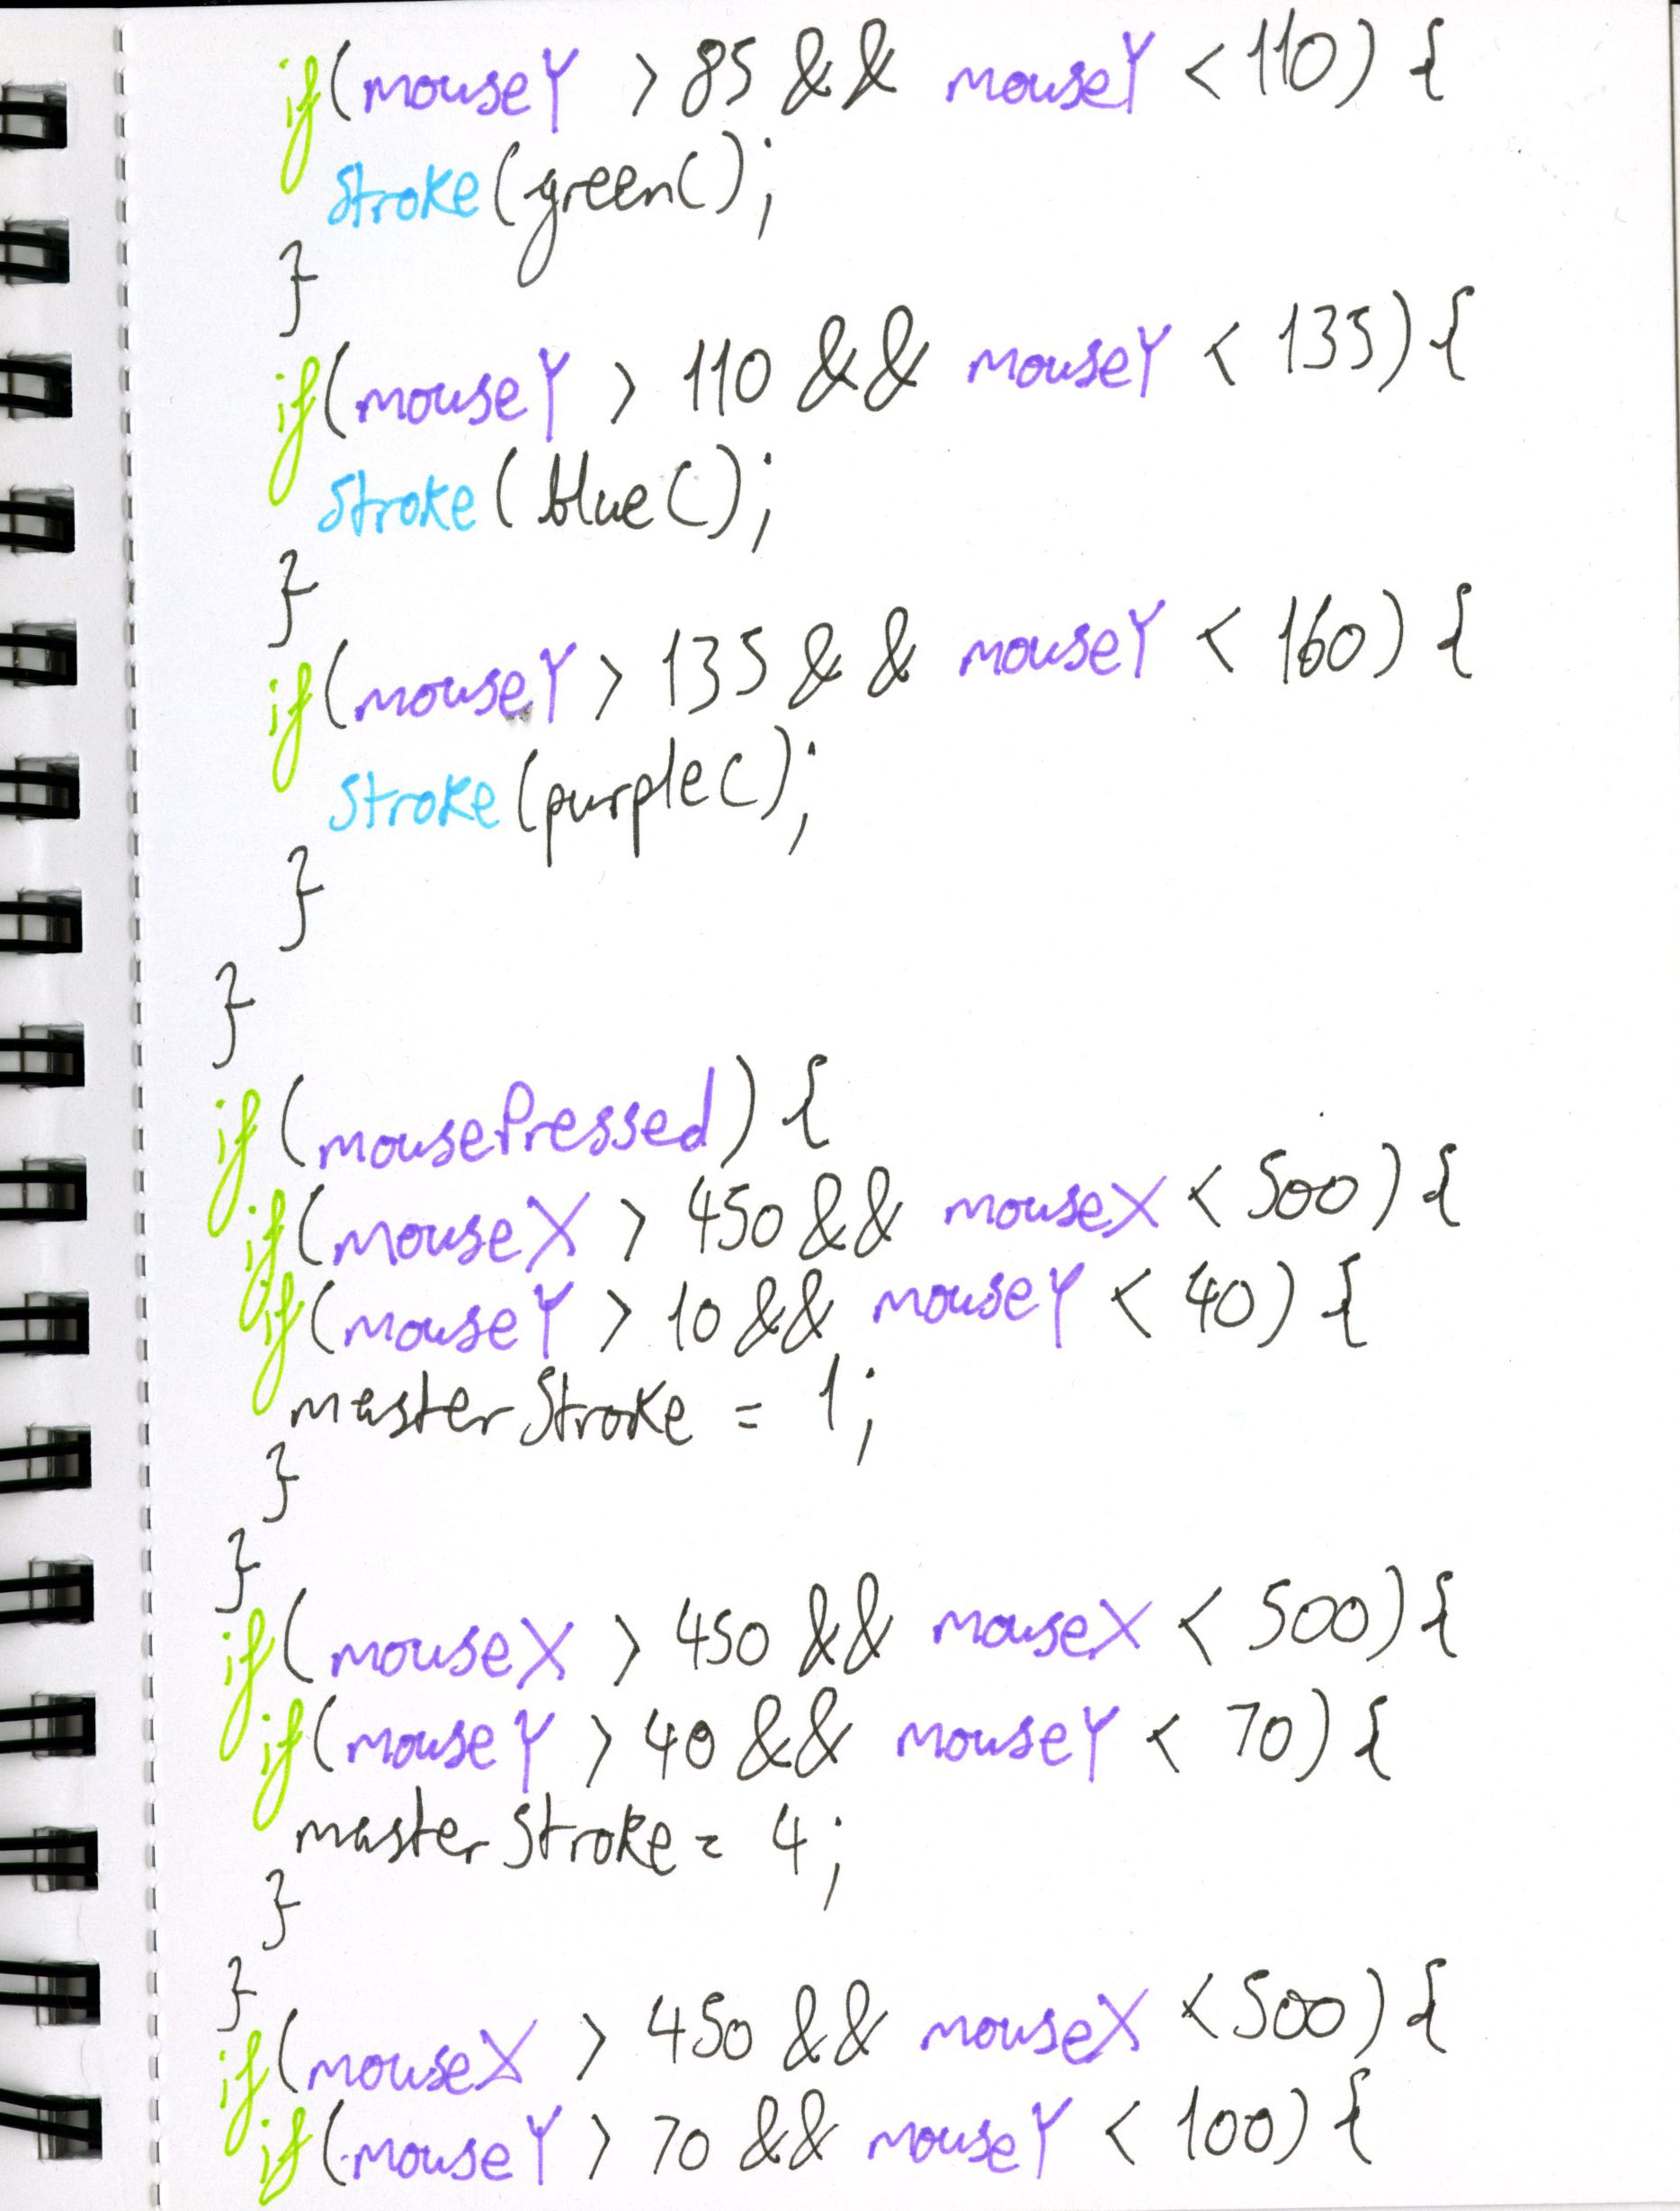 if(mouseY > 85 && mouseY < 110) {
stroke(greenC);
}
if(mouseY > 110 && mouseY < 135) {
stroke(blueC);
}
if(mouseY > 135 && mouseY < 160) {
stroke(purpleC);
}
}
if(mousePressed) {
if(mouseX > 450 && mouseX < 500) {
if(mouseY > 10 && mouseY < 40) {
masterStroke = 1;
}
}
if(mouseX > 450 && mouseX < 500) {
if(mouseY > 40 && mouseY < 70) {
masterStroke = 4;
}
}
if(mouseX > 450 && mouseX < 500) {
if(mouseY > 70 && mouseY < 100) {